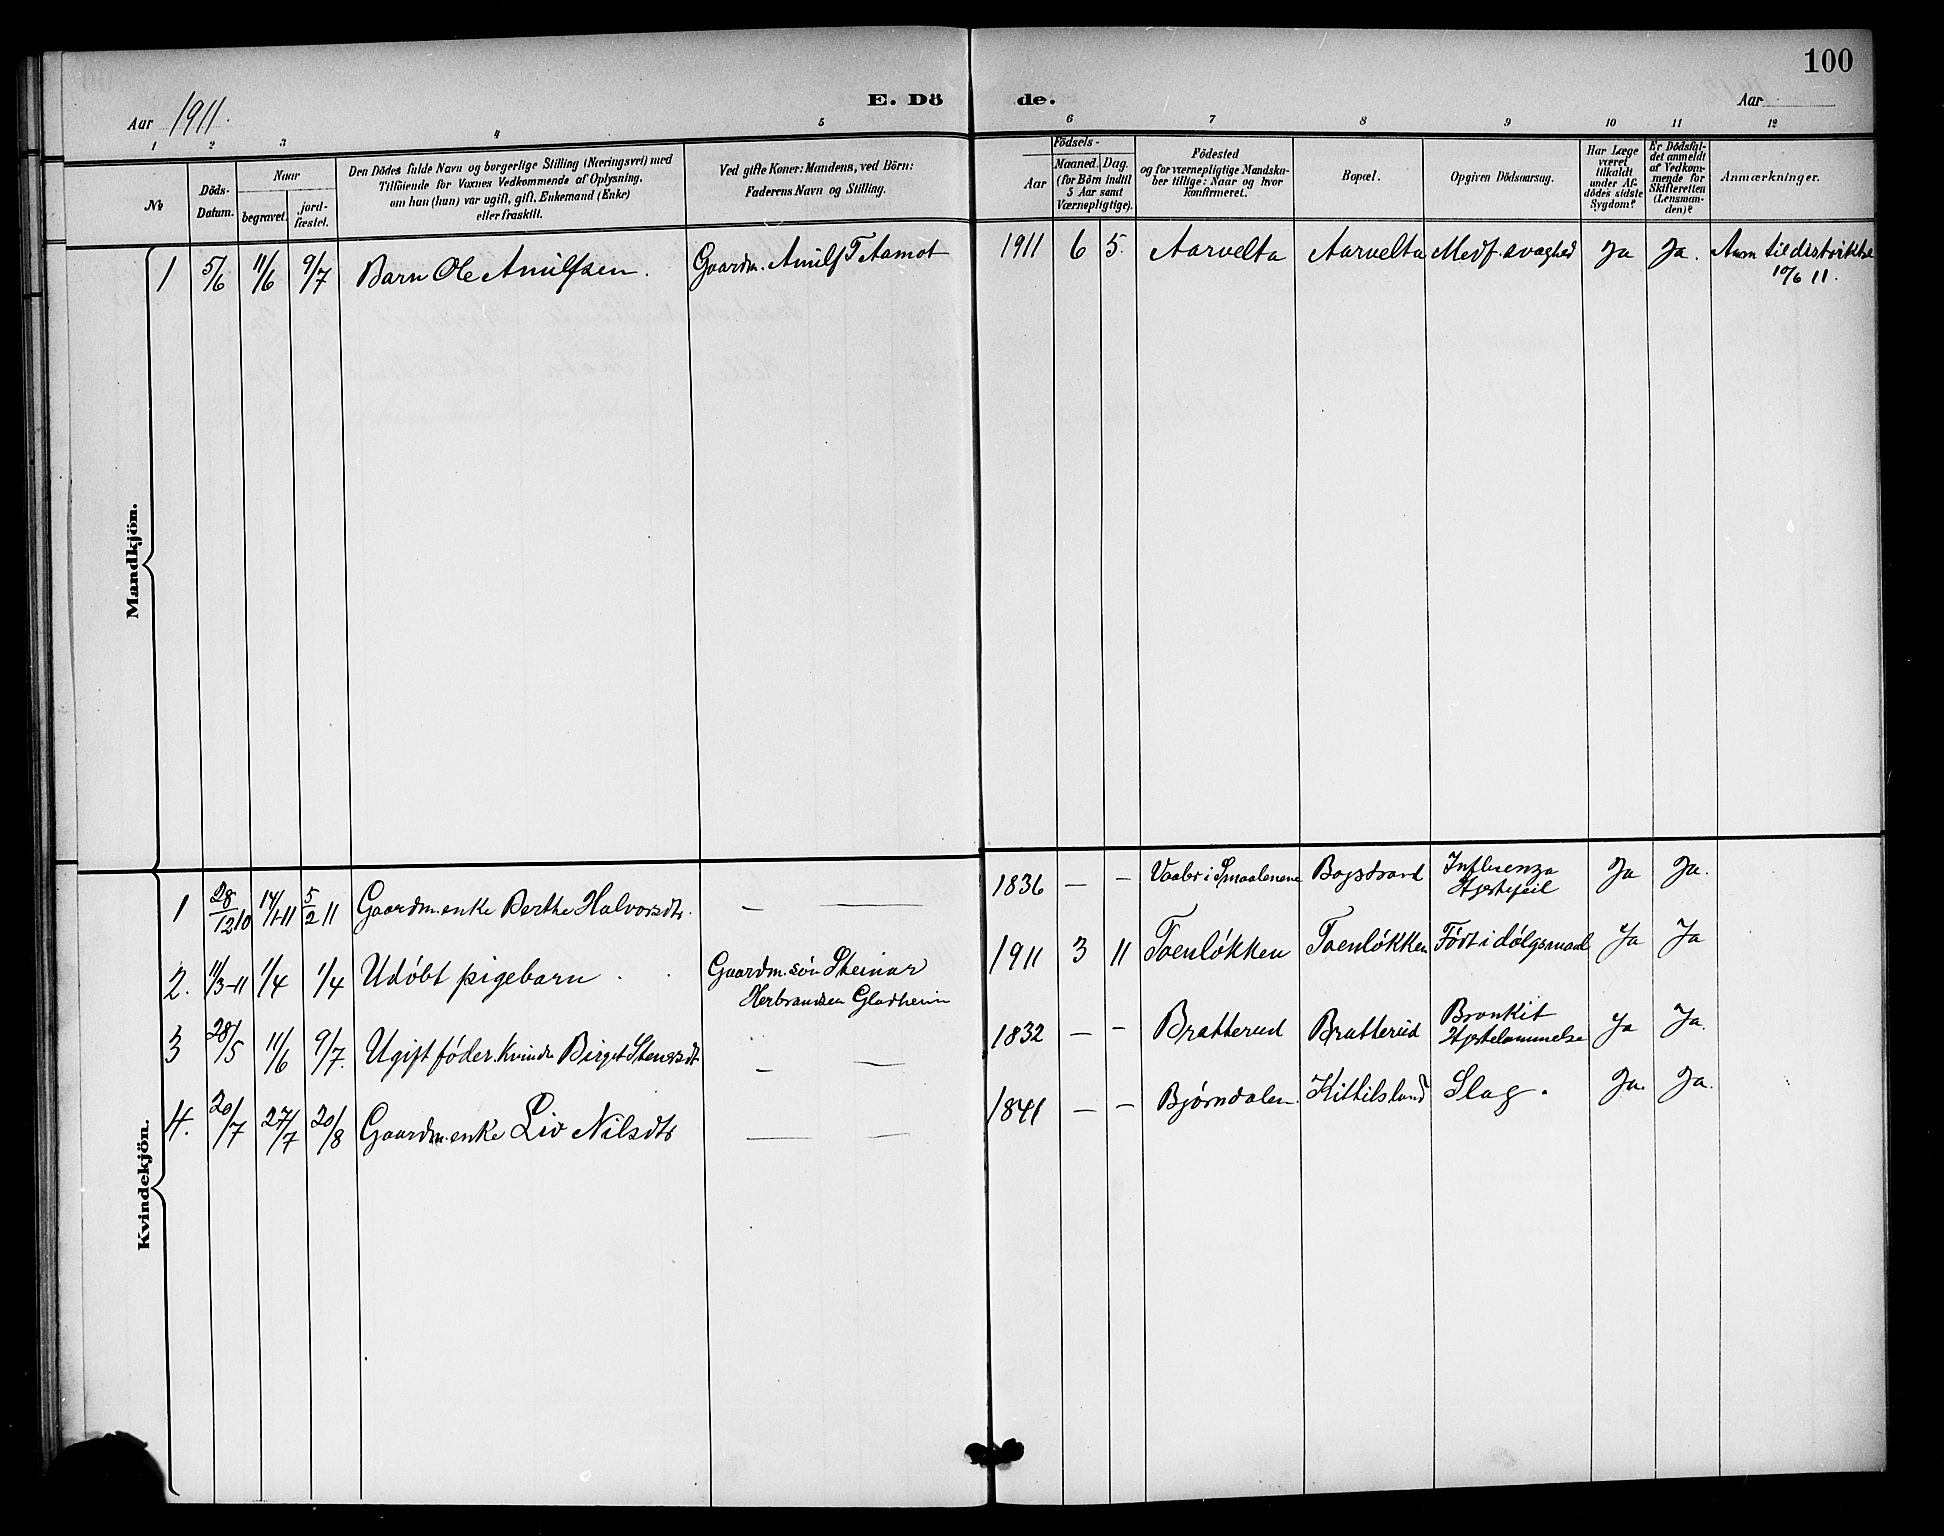 100
Aar 1911.
E. Dö
de.
Aar
1 2 3 4 5 6 7 8 9 10 11 12
№
Döds-Datum.
Naar
begravet.
jord-fæstet.
Den Dödes fulde Navn og borgerlige Stilling (Næringsvei) med
Tilföiende for Voxnes Vedkommende af Oplysning,
om han (hun) var ugift, gift, Enkemand (Enke)
eller fraskilt.
Ved gifte Koner: Mandens, ved Börn:
Faderens Navn og Stilling.
Födsels-
Aar
Maaned. Dag.
(for Börn indtil
5 Aar samt
Værnepligtige).
Födested
og for værnepligtige Mandska-
ber tillige: Naar og hvor
konfirmeret.
Bopæl.
Opgiven Dödsaarsag.
Har Læge
været
tilkaldt
under Af-
dödes sidste
Sygdom?
Er Dödsfal-
det anmeldt
af Vedkom-
mende for
Skifteretten
(Lensman-
den)?
Anmærkninger.
Mandkjön.
1 5/6 11/6 9/7 Barn Ole Arnulfsen. Gaardm. Arnulf T Aamot 1911 6 5. Aarvelta Aarvelta Medf. svaghed Ja Ja. Anm til distriktslæ
10/6 11.
Kvindekjön.
1 28/12 10 14/1-11 5/2 11 Gaardm. enke Berthe Halvorsdtr. — — 1836 — — Vaaler i Smaalenene Bogstrand Influenza Ja Ja.
Hjertefeil
2. 11/3-11 1/4 1/4 Udøbt pigebarn Gaardm. søn Steinar 1911 3 11 Toenløkken Toenløkken Født i dølgsmaal Ja Ja
Herbrandsen Gladheim
3 28/5 11/6 9/7. Ugift føder. Kvinde Birget Stensdtr — — 1832 — — Bratterud Bratterud Bronkit Ja Ja.
Hjertelammelse
4. 20/7 27/7 20/8 Gaardm. enke Liv Nilsdtr — — 1841 — — Bjørndalen Kittilsland Slag. Ja. Ja.